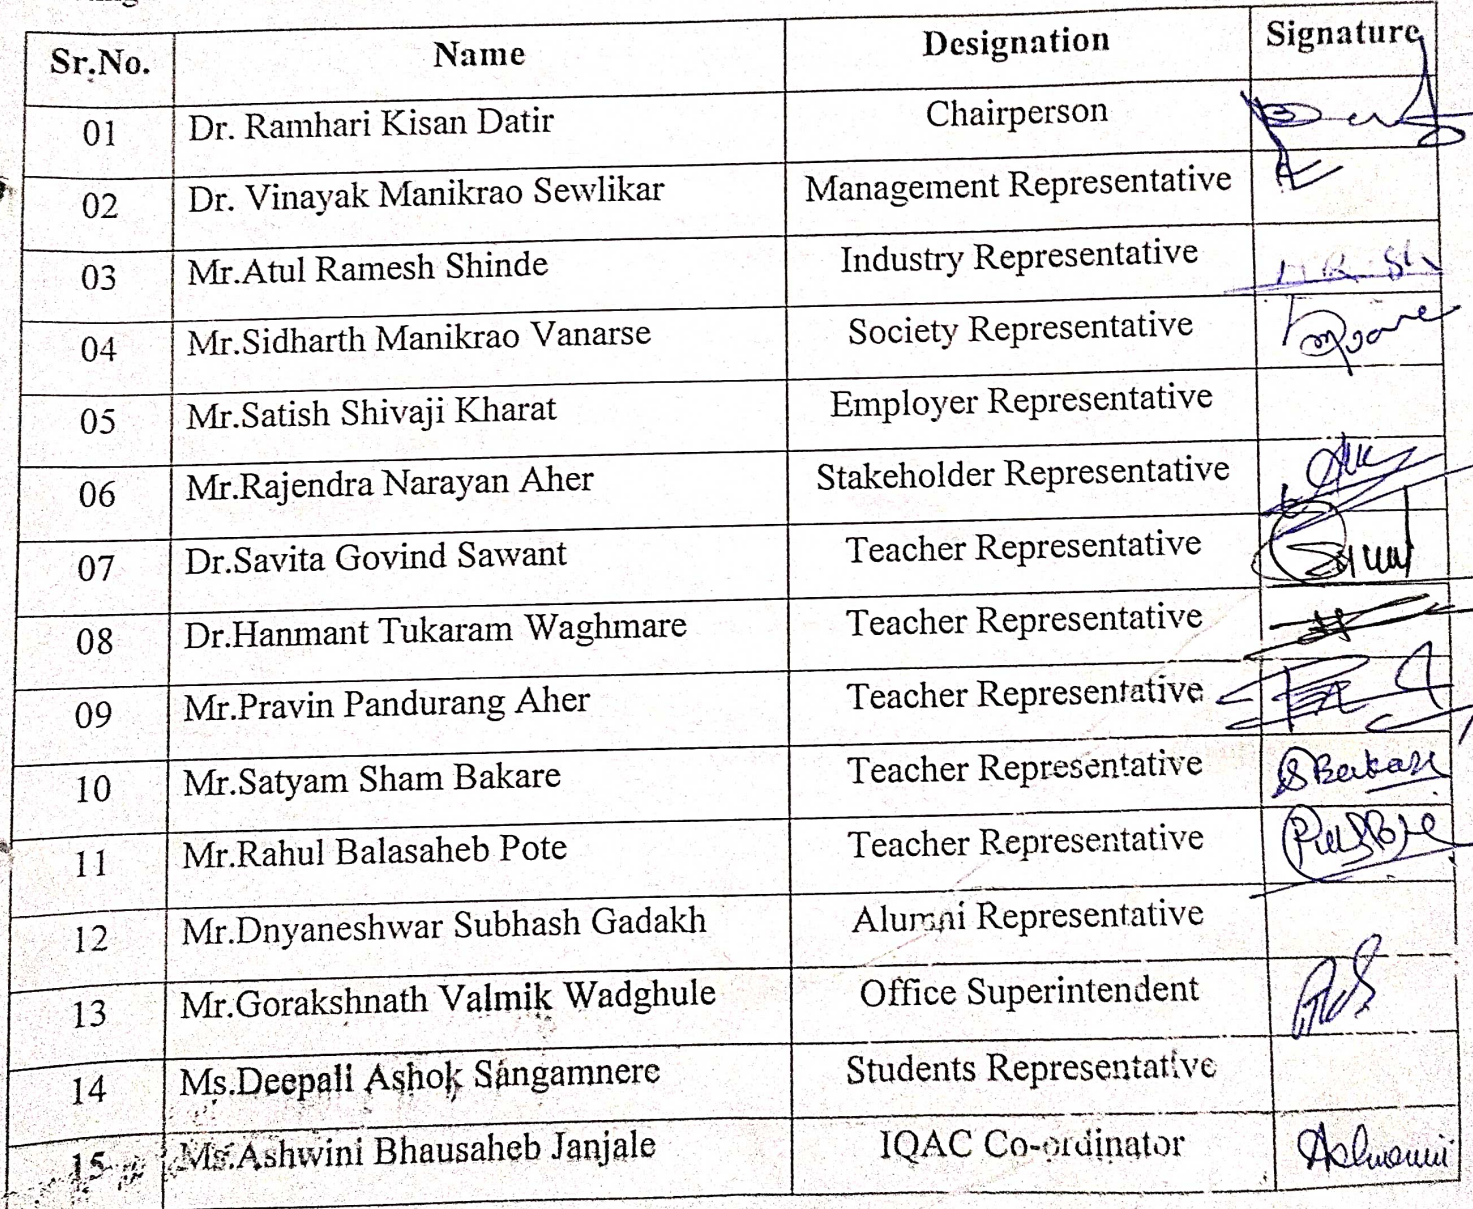 Sr.No. Name Designation Signature
01 Dr. Ramhari Kisan Datir Chairperson
02 Dr. Vinayak Manikrao Sewlikar Management Representative
03 Mr.Atul Ramesh Shinde Industry Representative
04 Mr.Sidharth Manikrao Vanarse Society Representative
05 Mr.Satish Shivaji Kharat Employer Representative
06 Mr.Rajendra Narayan Aher Stakeholder Representative
07 Dr.Savita Govind Sawant Teacher Representative
08 Dr.Hanmant Tukaram Waghmare Teacher Representative
09 Mr.Pravin Pandurang Aher Teacher Representative
10 Mr.Satyam Sham Bakare Teacher Representative SBakare
11 Mr.Rahul Balasaheb Pote Teacher Representative
12 Mr.Dnyaneshwar Subhash Gadakh Alumni Representative
13 Mr.Gorakshnath Valmik Wadghule Office Superintendent
14 Ms.Deepali Ashok Sangamnere Students Representative
15 Ms.Ashwini Bhausaheb Janjale IQAC Co-ordinator Ashwini